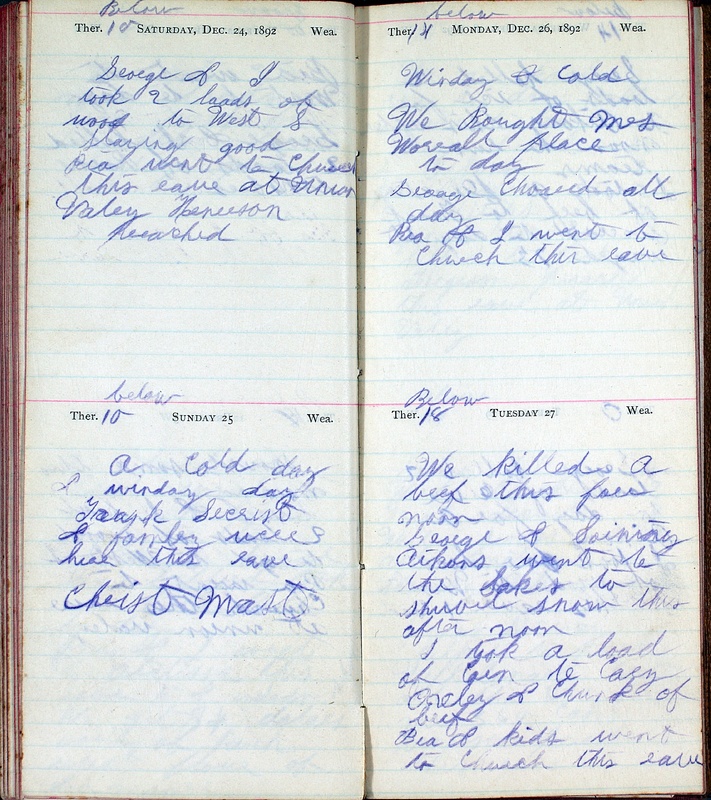 Below
Ther. 10 Saturday, Dec. 24, 1892 Wea.
George & I
took 2 loads of
wood to West &
staying good
Rea went to Church
this eave at Union
Valey Henerson
Preached
below
Ther. 10 Sunday 25 Wea.
A Cold day
& winday day
Frank Secrist
& famley were
hear this eave
Christ Mast
below
Ther. 14 Monday, Dec. 26, 1892 Wea.
Winday & Cold
We Bought Mrs
Woreall place
to day
George Chored all
day
Rea & I went to
Church this eave
Below
Ther. 18 Tuesday 27 Wea.
We killed a
beef this fore
noon
George &
Aikons went to
the to
shuvel snow this
after noon
I took a load
of to
& Chunk of
beef
Rea & kids went
to Church this eave